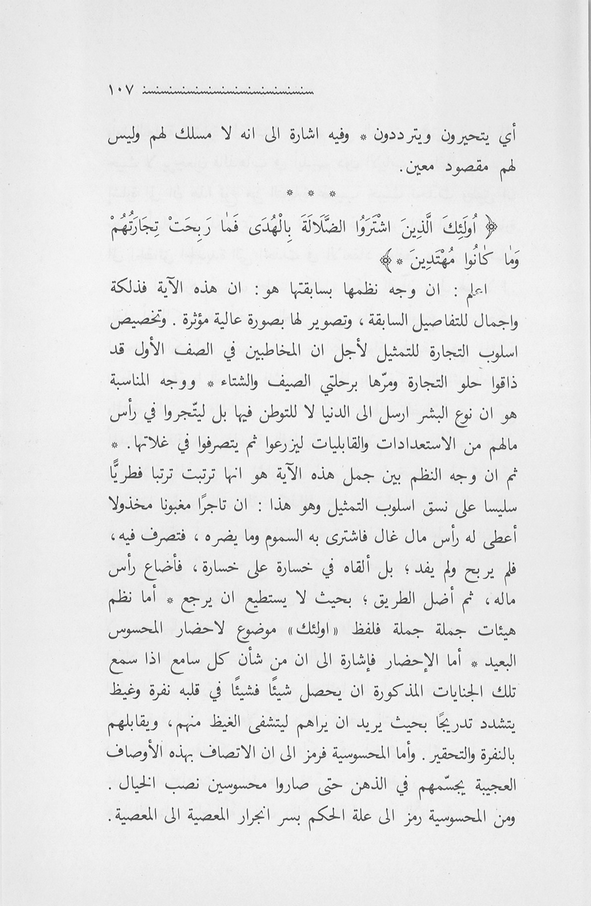 ١٠٧
أي يتحيرون ويترددون * وفيه اشارة الى انه لا مسلك لهم وليس
لهم مقصود معين.
* * *
﴿ اُولَئِكَ الَّذِينَ اشْتَرَوُا الضَّلَالَةَ بِالْهُدَى فَمَا رَبِحَتْ تِجَارَتُهُمْ
وَمَا كَانُوا مُهْتَدِينَ * ﴾
اعلم : ان وجه نظمها بسابقتها هو: ان هذه الآية فذلكة
واجمال للتفاصيل السابقة ، وتصوير لها بصورة عالية مؤثرة . وتخصيص
اسلوب التجارة للتمثيل لأجل ان المخاطبين في الصف الأول قد
ذاقوا حلو التجارة ومرّها برحلتي الصيف والشتاء * ووجه المناسبة
هو ان نوع البشر ارسل الى الدنيا لا للتوطن فيها بل ليتّجروا في رأس
مالهم من الاستعدادات والقابليات ليزرعوا ثم يتصرفوا في غلاتها. *
ثم ان وجه النظم بين جمل هذه الآية هو انها ترتبت ترتبا فطريًّا
سليسا على نسق اسلوب التمثيل وهو هذا : ان تاجرًا مغبونا مخذولا
أعطى له رأس مال غال فاشترى به السموم وما يضره ، فتصرف فيه،
فلم يربح ولم يفد ؛ بل ألقاه في خسارة على خسارة، فأضاع رأس
ماله، ثم أضل الطريق ؛ بحيث لا يستطيع ان يرجع * أما نظم
هيئات جملة جملة فلفظ «اولئك» موضوع لاحضار المحسوس
البعيد * أما الإحضار فإشارة الى ان من شأن كل سامع اذا سمع
تلك الجنايات المذكورة ان يحصل شيئًا فشيئًا في قلبه نفرة وغيظ
يتشدد تدريجًا بحيث يريد ان يراهم ليتشفى الغيظ منهم، ويقابلهم
بالنفرة والتحقير . وأما المحسوسية فرمز الى ان الاتصاف بهذه الأوصاف
العجيبة يجسّمهم في الذهن حتى صاروا محسوسين نصب الخيال .
ومن المحسوسية رمز الى علة الحكم بسر انجرار المعصية الى المعصية.